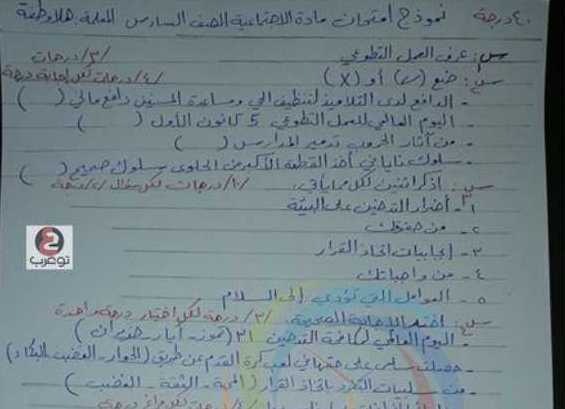 ٤٠ درجة نموذج امتحانات مادة الاجتماعية الصف السادس المعلمة: هلا وطفة
س١: عرف العمل التطوعي /٣/ درجات
س٢: ضع (✓) أو (X) /٤/ درجات لكل إجابة درجة
- الدافع لدى التلاميذ لتنظيف الحي ومساعدة المسنين دافع مالي ( )
- اليوم العالمي للعمل التطوعي 5 كانون الأول ( )
- من آثار الحروب تدمير المدارس ( )
- سلوك ناياني أخذ القطعة الأكبر من الحلوى سلوك صحيح ( )
س٣: اذكر اثنين لكل مما يأتي: /١٠/ درجات لكل سؤال /٢/ درجة
١- أضرار التدخين على البيئة
٢- من حقوقك
٣- إيجابيات اتخاذ القرار
٤- من واجباتك
٥- العوامل التي تؤدي إلى السلام
س٤: اختر الإجابة الصحيحة: /٣/ درجة لكل اختيار درجة واحدة
- اليوم العالمي لمكافحة التدخين ٣١ (تموز - أيار - حزيران)
- حصلت سلمى على حقها في لعب كرة القدم عن طريق (الحوار - الغضب - البكاء)
- من سلبيات التفرد باتخاذ القرار (المحبة - الثقة - الغضب)
توعرب